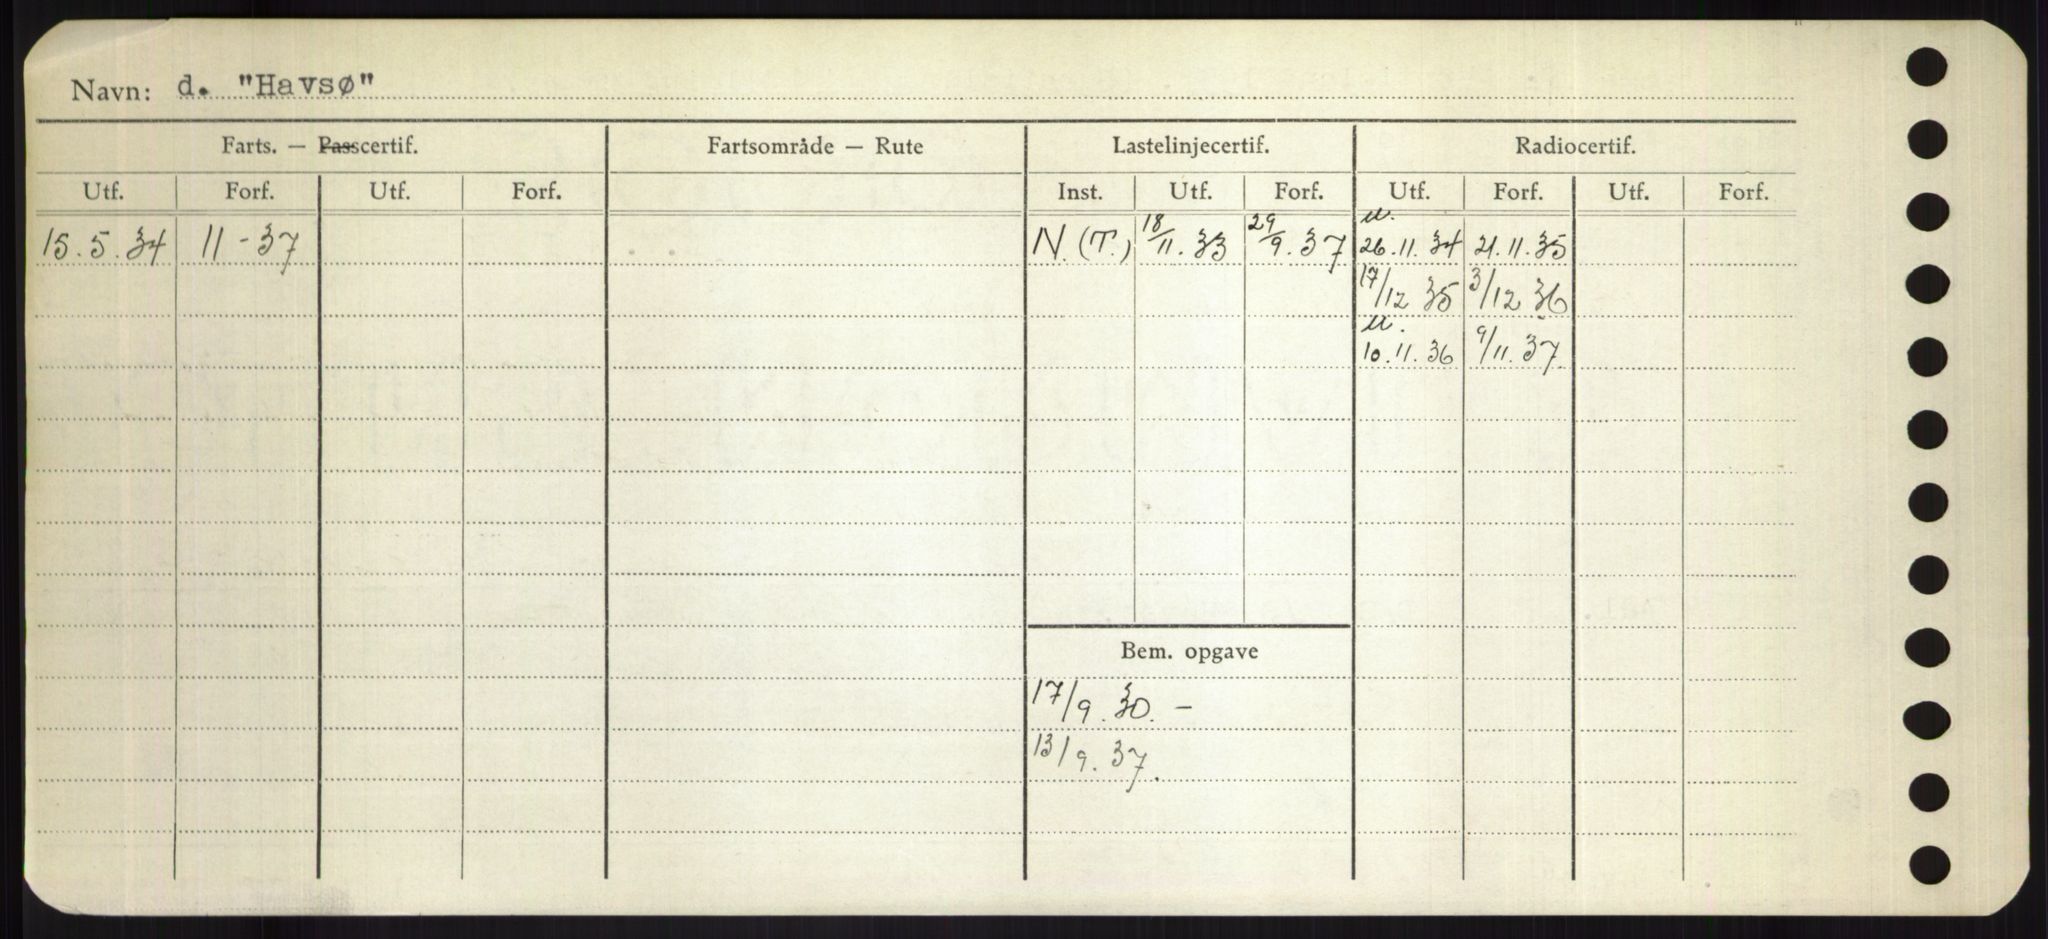 Navn: d. "Havsø"
Farts. — Passcertif. Fartsområde — Rute Lastelinjecertif. Radiocertif.
Utf. Forf. Utf. Forf. Inst. Utf. Forf. Utf. Forf. Utf. Forf.
15.5.34 11-37 N.(T.) 18/11.33 29/9.37 u. 26.11.34 21.11.35
17/12 35 3/12 36
u. 10.11.36 9/11.37
Bem. opgave
17/9.30.-
13/9.37.